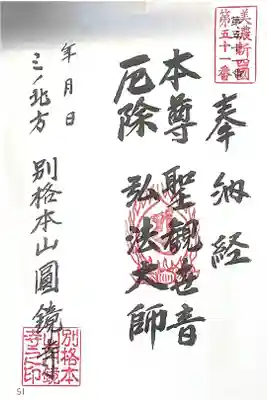 美濃新四國
第五十一番
奉納経
本尊 聖観世音
厄除 弘法大師
年月日
ミノ北方 別格本山圓鏡寺
別格本
山圓鏡
寺之印
51